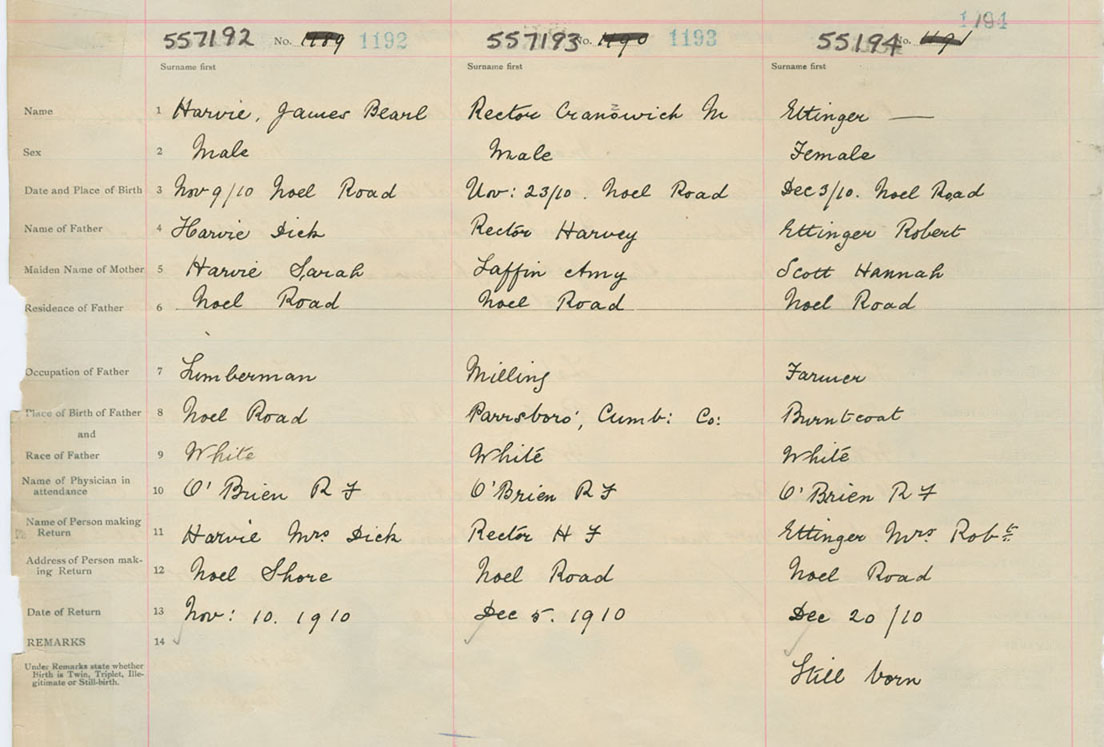 557192 No. 1189 1192 557193 No. 1190 1193 55194 No. 1191 1194
Surname first Surname first Surname first
Name 1 Harvie, James Bearl Rector Cranswich M Ettinger —
Sex 2 Male Male Female
Date and Place of Birth 3 Nov 9/10 Noel Road Nov: 23/10. Noel Road Dec 3/10. Noel Road
Name of Father 4 Harvie Dick Rector Harvey Ettinger Robert
Maiden Name of Mother 5 Harvie Sarah Laffin Amy Scott Hannah
Residence of Father 6 Noel Road Noel Road Noel Road
Occupation of Father 7 Lumberman Milling Farmer
Place of Birth of Father 8 Noel Road Parrsboro', Cumb: Co: Burntcoat
and
Race of Father 9 White White White
Name of Physician in
attendance 10 O'Brien R F O'Brien R F O'Brien R F
Name of Person making
Return 11 Harvie Mrs Dick Rector H F Ettinger Mrs Robt
Address of Person mak-
ing Return 12 Noel Shore Noel Road Noel Road
Date of Return 13 Nov: 10. 1910 Dec 5. 1910 Dec 20/10
REMARKS 14
Under Remarks state whether
Birth is Twin, Triplet, Ille-
gitimate or Still-birth.
Still born